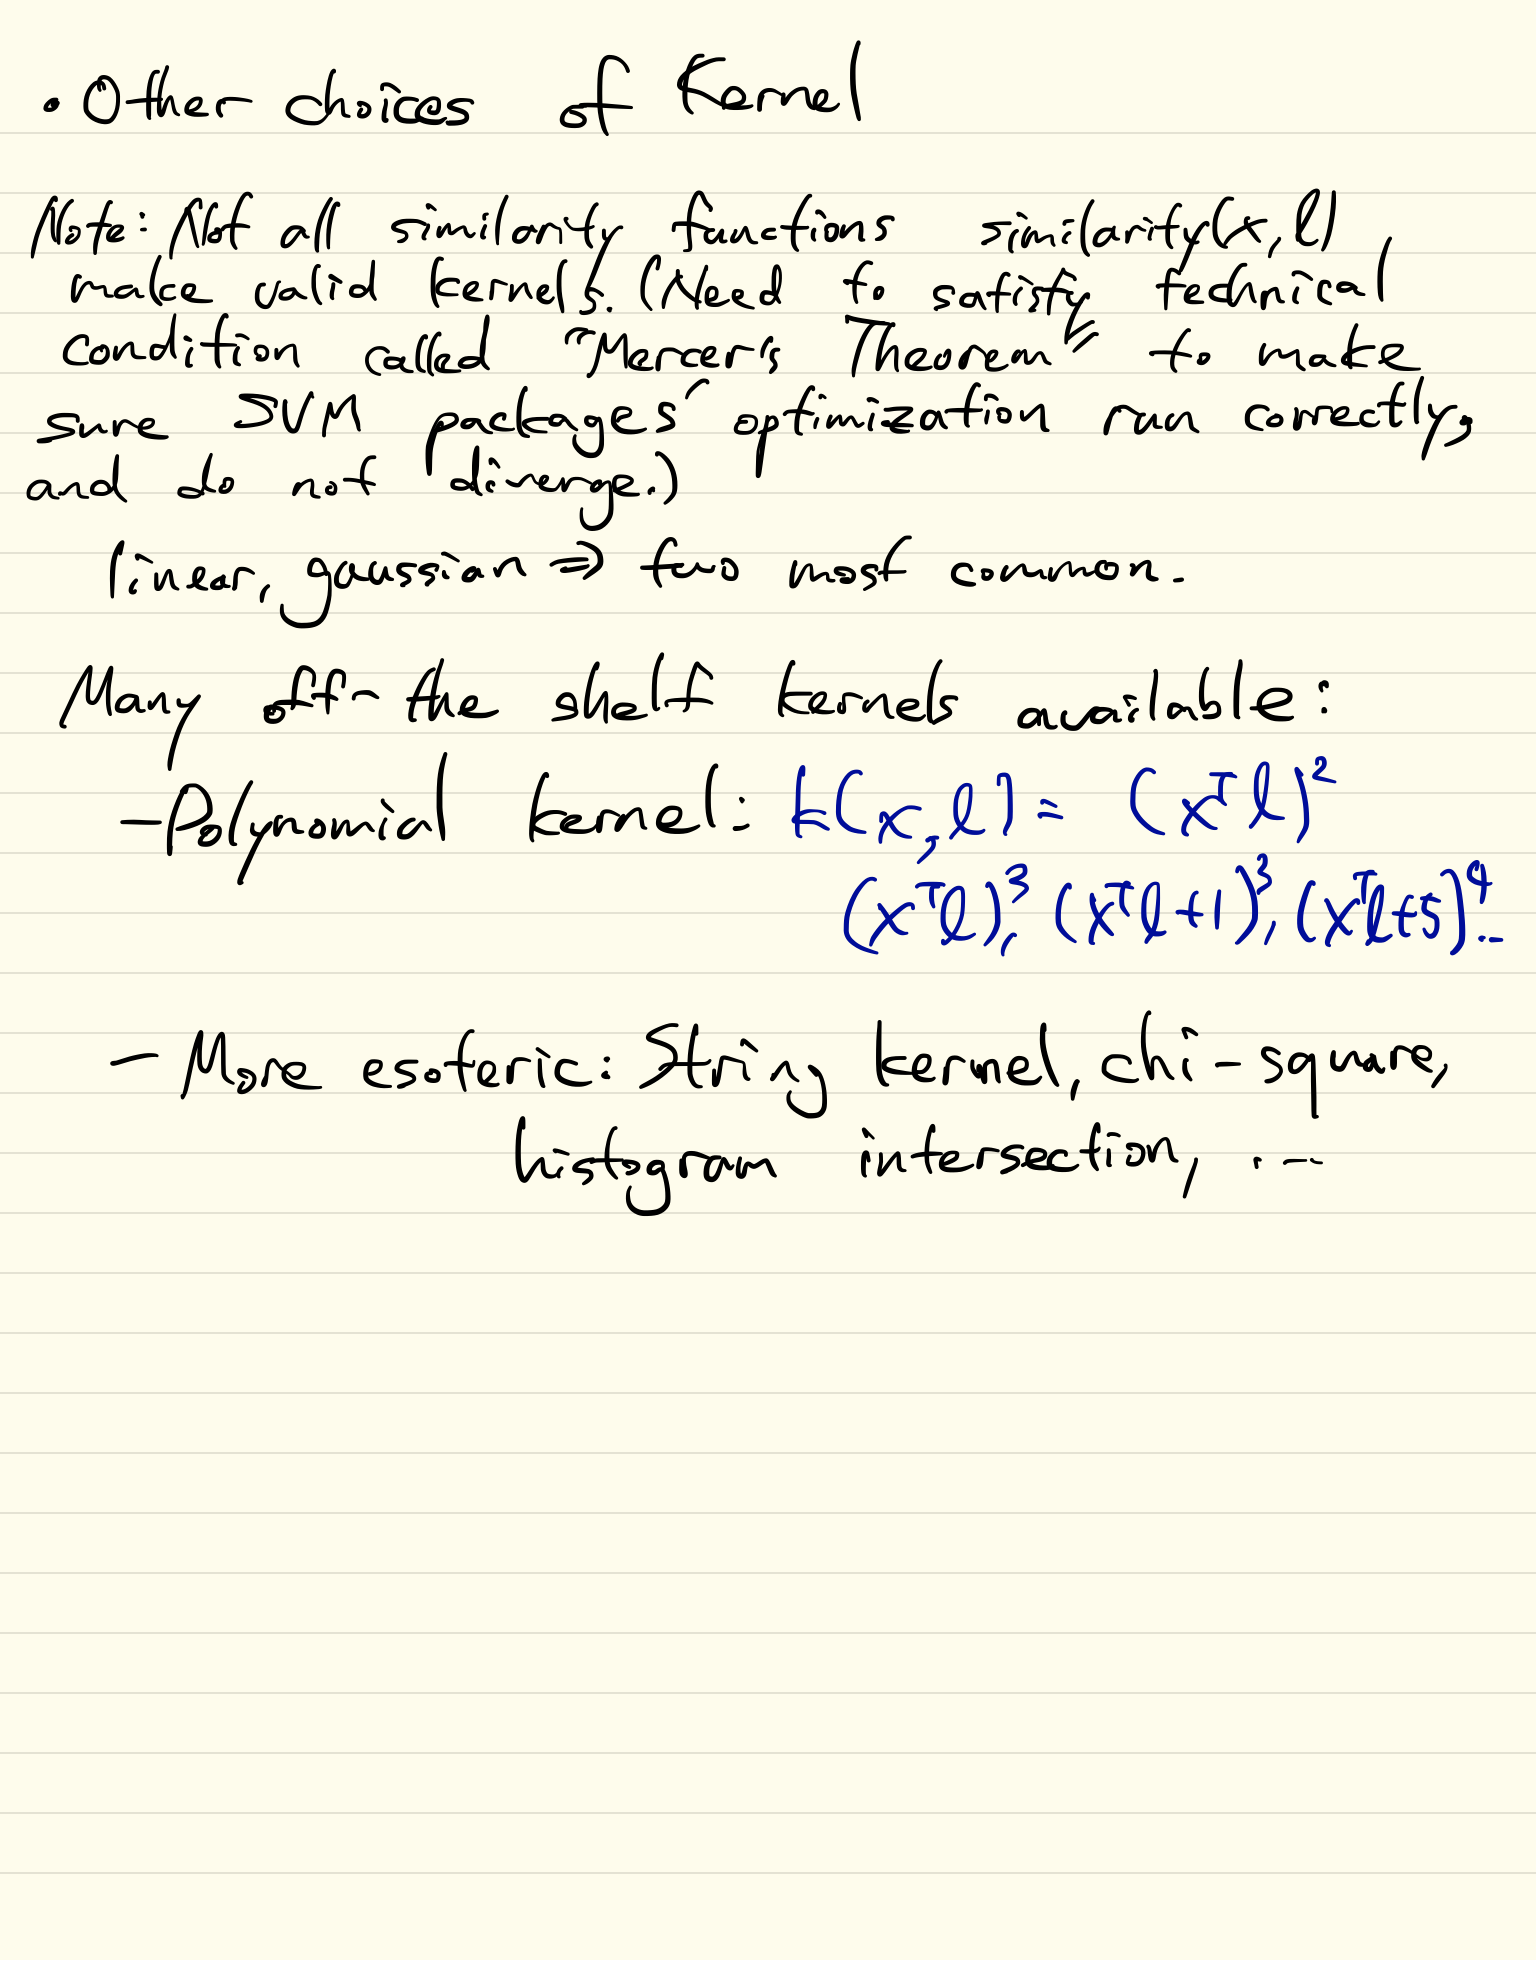 • Other choices of Kernel
Note: Not all similarity functions similarity(x, l)
make valid kernels. (Need to satisfy technical
condition called "Mercer's Theorem" to make
sure SVM packages' optimization run correctly,
and do not diverge.)
linear, gaussian ⇒ two most common.
Many off-the shelf kernels available:
- Polynomial kernel: k(x, l) = (xᵀl)²
(xᵀl)³, (xᵀl+1)³, (xᵀl+5)⁴...
- More esoteric: String kernel, chi-square,
histogram intersection, ...